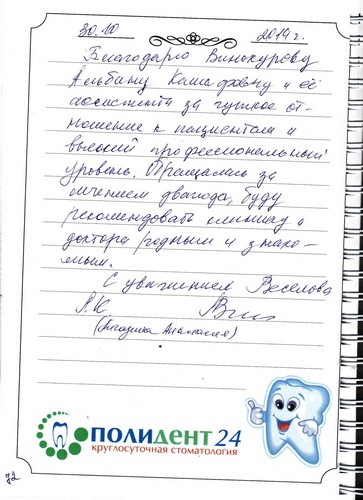 30.10 2019 г.
Благодарю Винокурову
Альбину Кашафовну и её
ассистента за чуткое от-
ношение к пациентам и
высокий профессиональный
уровень. Прещалась за
лечением два года, буду
рекомендовать клинику и
доктора родным и знако-
мым.
С уважением Веселова
Л.К
Анастасия)
ПОЛИДЕНТ 24
круглосуточная стоматология
72